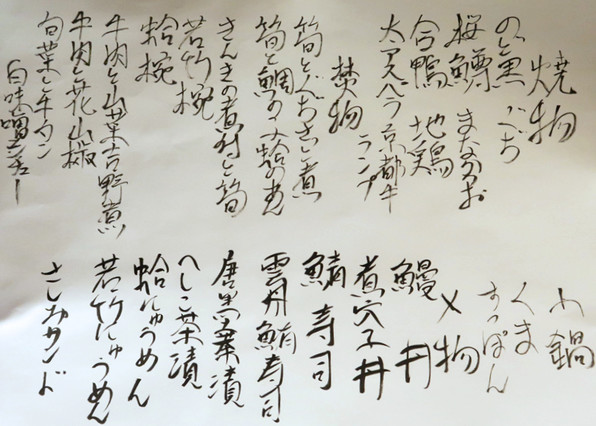 焼物
のど黒 ぐぢ
桜鱒 まながつお
合鴨 地鶏
太アスパラ 京都牛
ランプ
焚物
筍とぐぢさし煮
筍と鯛の子
きんきの煮付と筍
若竹椀
蛤椀
牛肉と山菜吉野煮
牛肉と花山椒
旬菜と牛タン
白味噌シチュー
小鍋
くま
すっぽん
〆物
鰻丼
煮穴子丼
鯖寿司
雲丹鮪寿司
唐墨蕎麦
へしこ茶漬
蛤にゅうめん
若竹にゅうめん
さしみサンド